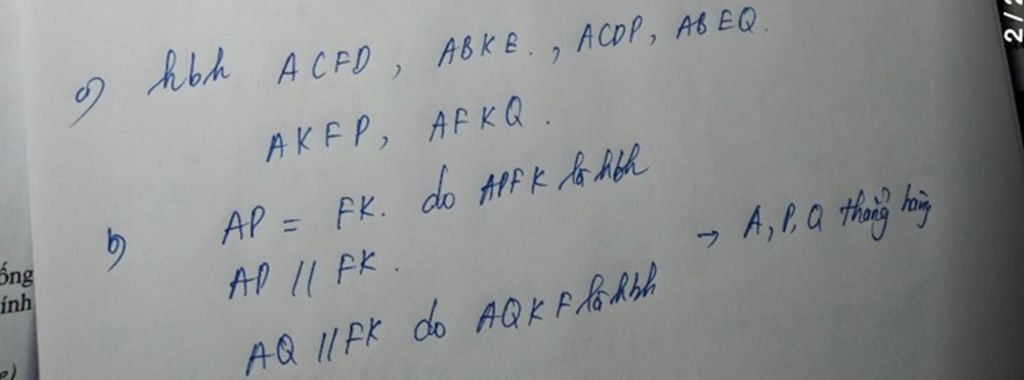 a) hbh ACFD, ABKE., ACDP, ABEQ.
AKFP, AFKQ.
b) AP = FK. do APFK là hbh
AP // FK.
→ A, P, Q thẳng hàng
AQ // FK do AQKF là hbh
ống
ính
e)
2/2